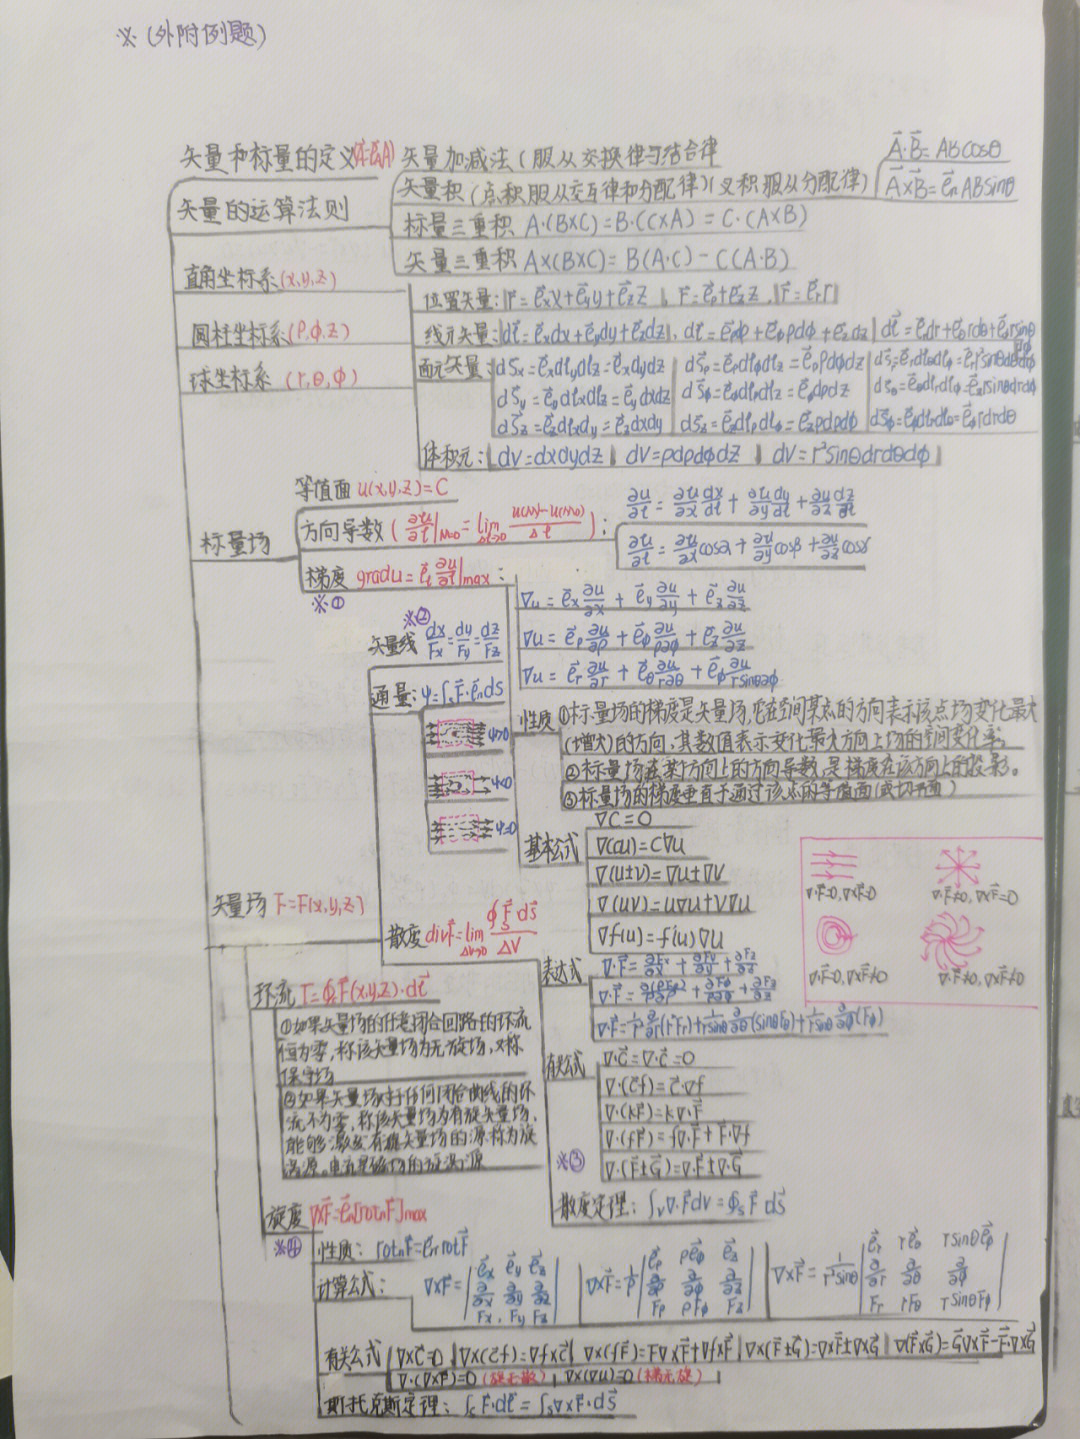 ※(外附例题)
矢量和标量的定义
矢量加减法(服从交换律与结合律
A⃗·B⃗=ABcosθ
矢量的运算法则
矢量积(点积服从交互律和分配律)(叉积服从分配律)
A⃗×B⃗=e⃗n ABsinθ
标量三重积 A·(B×C)=B·(C×A)=C·(A×B)
矢量三重积 A×(B×C)=B(A·C)-C(A·B)
直角坐标系(x,y,z)
圆柱坐标系(ρ,φ,z)
球坐标系 (r,θ,φ)
位置矢量: r⃗=e⃗x x+e⃗y y+e⃗z z | r⃗=e⃗ρ+e⃗z z | r⃗=e⃗r r
线元矢量: dl⃗=e⃗x dx+e⃗y dy+e⃗z dz | dl⃗=e⃗ρ dρ+e⃗φ ρdφ+e⃗z dz | dl⃗=e⃗r dr+e⃗θ rdθ+e⃗φ rsinθdφ
面元矢量: dS⃗x=e⃗x dly dlz=e⃗x dydz | dS⃗ρ=e⃗ρ dlφ dlz=e⃗ρ ρdφdz | dS⃗r=e⃗r dlθ dlφ=e⃗r r²sinθdθdφ
dS⃗y=e⃗y dlx dlz=e⃗y dxdz | dS⃗φ=e⃗φ dlρ dlz=e⃗φ dρdz | dS⃗θ=e⃗θ dlr dlφ=e⃗z rsinθdrdφ
dS⃗z=e⃗z dlx dy=e⃗z dxdy | dS⃗z=e⃗z dlρ dlφ=e⃗z ρdρdφ | dS⃗φ=e⃗φ dlr dlθ=e⃗φ rdrdθ
体积元: dV=dxdydz | dV=ρdρdφdz | dV=r²sinθdrdθdφ
标量场
等值面 u(x,y,z)=C
方向导数(∂u/∂l|M0=lim Δl→0 (u(M)-u(M0))/Δl):
∂u/∂l=∂u/∂x dx/dl+∂u/∂y dy/dl+∂u/∂z dz/dl
∂u/∂l=∂u/∂x cosα+∂u/∂y cosβ+∂u/∂z cosγ
梯度 gradu=e⃗l ∂u/∂l|max:
※①
∇u=e⃗x ∂u/∂x+e⃗y ∂u/∂y+e⃗z ∂u/∂z
∇u=e⃗ρ ∂u/∂ρ+e⃗φ ∂u/ρ∂φ+e⃗z ∂u/∂z
∇u=e⃗r ∂u/∂r+e⃗θ ∂u/r∂θ+e⃗φ ∂u/rsinθ∂φ
性质 ①标量场的梯度是矢量场,它在空间某点的方向表示该点场变化最大
(增大)的方向,其数值表示变化最大方向上场的空间变化率。
②标量场在某方向上的方向导数,是梯度在该方向上的投影。
③标量场的梯度垂直于通过该点的等值面(或切平面)
基本公式
∇C=0
∇(cu)=C∇u
∇(u±v)=∇u±∇v
∇(uv)=u∇u+v∇u
∇f(u)=f'(u)∇u
矢量场 F⃗=F(x,y,z)
※②
矢量线 dx/Fx=dy/Fy=dz/Fz
通量: ψ=∫s F⃗·e⃗n ds
ψ>0
ψ<0
ψ=0
散度 divF⃗=lim ΔV→0 ∮s F⃗ ds⃗/ΔV
表达式
∇·F⃗=∂Fx/∂x+∂Fy/∂y+∂Fz/∂z
∇·F⃗=∂(ρFρ)/ρ∂ρ+∂Fφ/ρ∂φ+∂Fz/∂z
∇·F⃗=1/r² ∂/∂r(r²Fr)+1/rsinθ ∂/∂θ(sinθFθ)+1/rsinθ ∂/∂φ(Fφ)
∇·F⃗=0,∇×F⃗=0
∇·F⃗≠0,∇×F⃗=0
∇·F⃗=0,∇×F⃗≠0
∇·F⃗≠0,∇×F⃗≠0
有关公式
∇·C⃗=∇·C⃗=0
∇·(C⃗f)=C⃗·∇f
∇·(kF⃗)=k∇·F⃗
∇·(fF⃗)=f∇·F⃗+F⃗·∇f
∇·(F⃗±G⃗)=∇·F⃗±∇·G⃗
※③
散度定理: ∫v∇·F⃗dv=∮s F⃗ ds⃗
环流 Γ=∮c F⃗(x,y,z)·dl⃗
①如果矢量场的任意闭合回路的环流
恒为零,称该矢量场为无旋场,又称
保守场
②如果矢量场对于任何闭合曲线的环
流不为零,称该矢量场为有旋矢量场,
能够激发有旋矢量场的源称为旋
涡源。电流是磁场的旋涡源
旋度 ∇×F⃗=e⃗n[rotnF⃗]max
※④
性质: rotnF⃗=e⃗n rotF⃗
计算公式: ∇×F⃗=|e⃗x e⃗y e⃗z; ∂/∂x ∂/∂y ∂/∂z; Fx Fy Fz| ∇×F⃗=1/ρ|e⃗ρ ρe⃗φ e⃗z; ∂/∂ρ ∂/∂φ ∂/∂z; Fρ ρFφ Fz| ∇×F⃗=1/r²sinθ|e⃗r re⃗θ rsinθe⃗φ; ∂/∂r ∂/∂θ ∂/∂φ; Fr rFθ rsinθFφ|
有关公式 |∇×C⃗=0 |∇×(C⃗f)=∇f×C⃗| ∇×(fF⃗)=F∇×F⃗+∇f×F⃗|∇×(F⃗±G⃗)=∇×F⃗±∇×G⃗|∇(F⃗×G⃗)=G⃗∇×F⃗-F⃗·∇×G⃗
∇·(∇×F⃗)=0(旋无散) | ∇×(∇u)=0(梯无旋)
斯托克斯定理: ∫c F⃗·dl⃗=∫s∇×F⃗·dS⃗